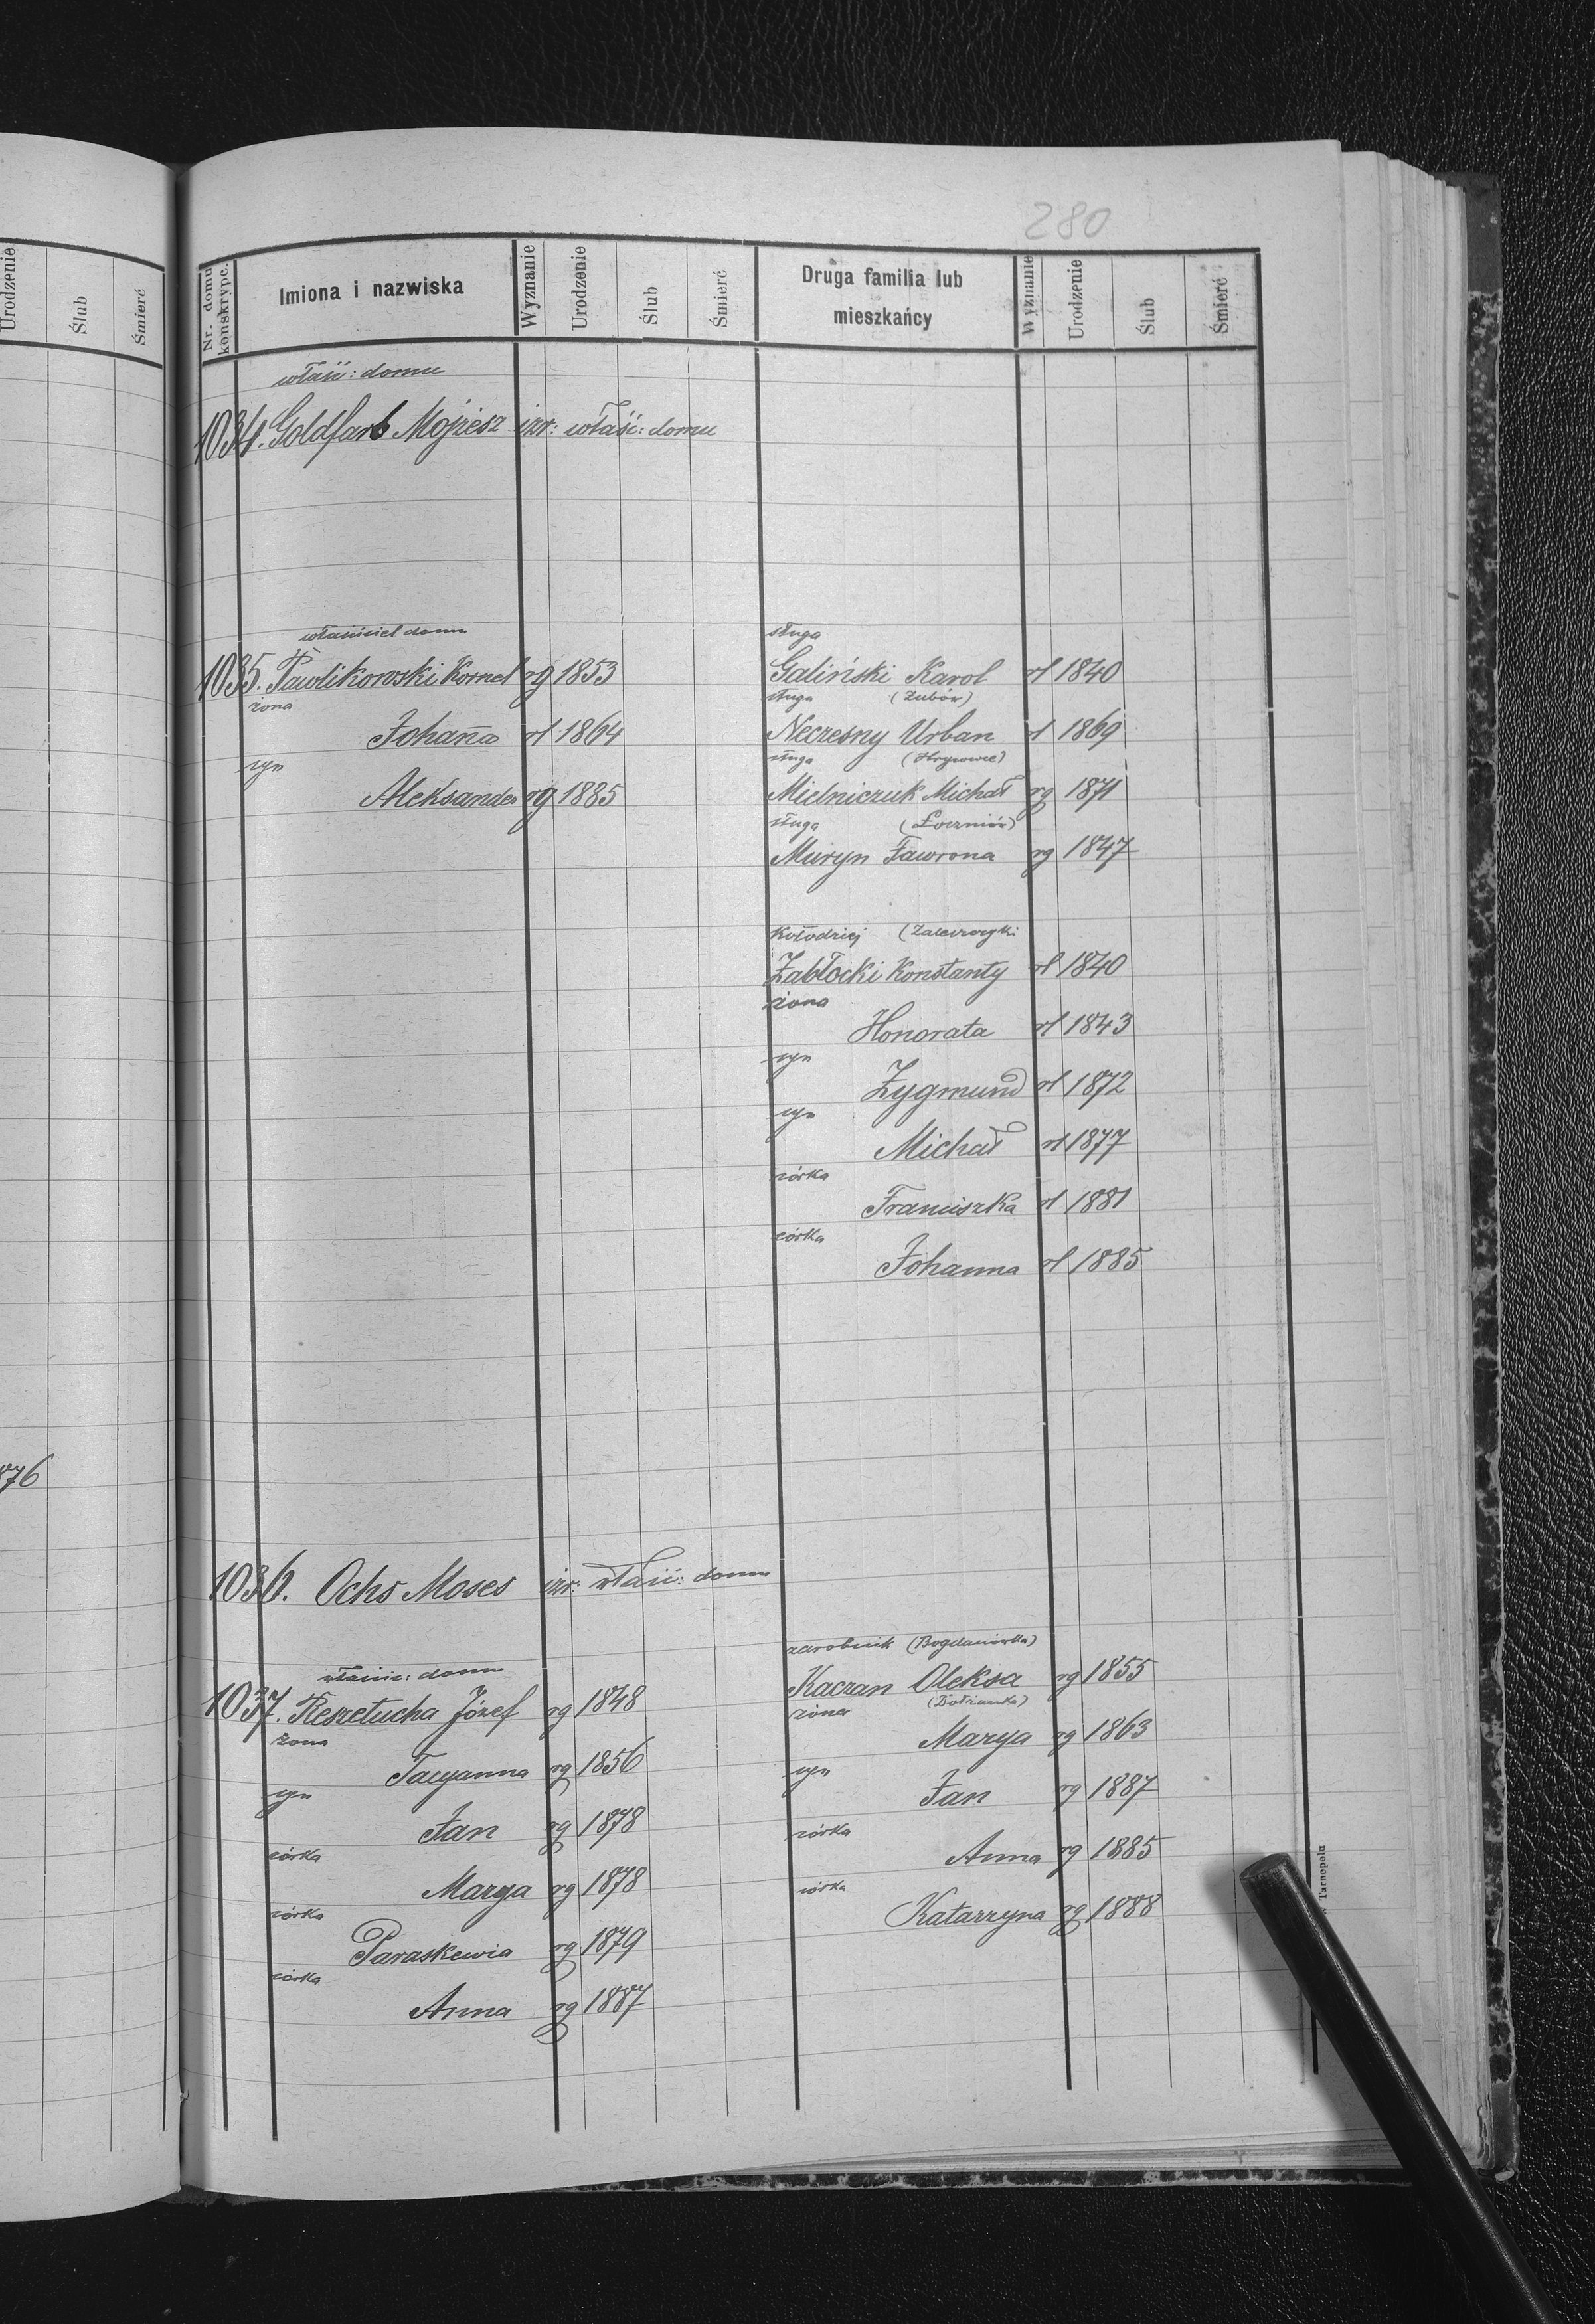 280
Urodzenie
Ślub
Śmierć
876
Nr. domu konskrypc.
Imiona i nazwiska
Wyznanie
Urodzenie
Ślub
Śmierć
Druga familia lub
mieszkańcy
Wyznanie
Urodzenie
Ślub
Śmierć
właśc: domu
1034. Goldfarb Mojżesz izr: właśc: domu
właściciel domu
1035. Pawlikowski Kornel rg 1853
żona
Johana rł 1864
syn
Aleksander rg 1885
sługa
Galiński Karol rł 1840
sługa (Zubów)
Neczesny Urban rł 1869
sługa (Hryowce)
Mielniczuk Michał rg 1871
sługa
Muryn Ławrona rg 1847
Kołodziej (Zaleszczyki
Zabłocki Konstanty rł 1840
żona
Honorata rł 1843
syn
Zygmund rł 1872
syn
Michał rł 1877
córka
Franciszka rł 1881
córka
Johanna rł 1885
1036. Ochs Moses izr: właśc: domu
właśc: domu
1037. Reszetucha Józef rg 1848
żona
Tacyanna rg 1856
syn
Jan rg 1878
córka
Marya rg 1878
córka
Paraskewia rg 1879
córka
Anna rg 1887
zarobnik (Bogdanówka)
Kaczan Oleksa rg 1855
żona (Dołżanka)
Marya rg 1863
syn
Jan rg 1887
córka
Anna rg 1885
córka
Katarzyna rg 1888
Tarnopolu